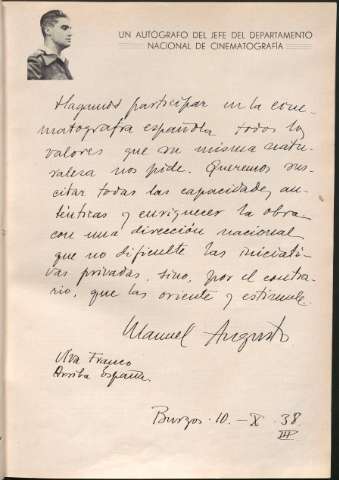 UN AUTOGRAFO DEL JEFE DEL DEPARTAMENTO
NACIONAL DE CINEMATOGRAFÍA
Hagamos participar en la cine-
matografía española todos los
valores que su misma natu-
raleza nos pide. Queremos sus-
citar todas las capacidades au-
ténticas y enriquecer la obra
con una dirección nacional
que no dificulte las iniciati-
vas privadas, sino, por el contra-
rio, que las oriente y estimule.
Manuel Augusto
Viva Franco
Arriba España.
Burgos · 10 · – X · 38
III